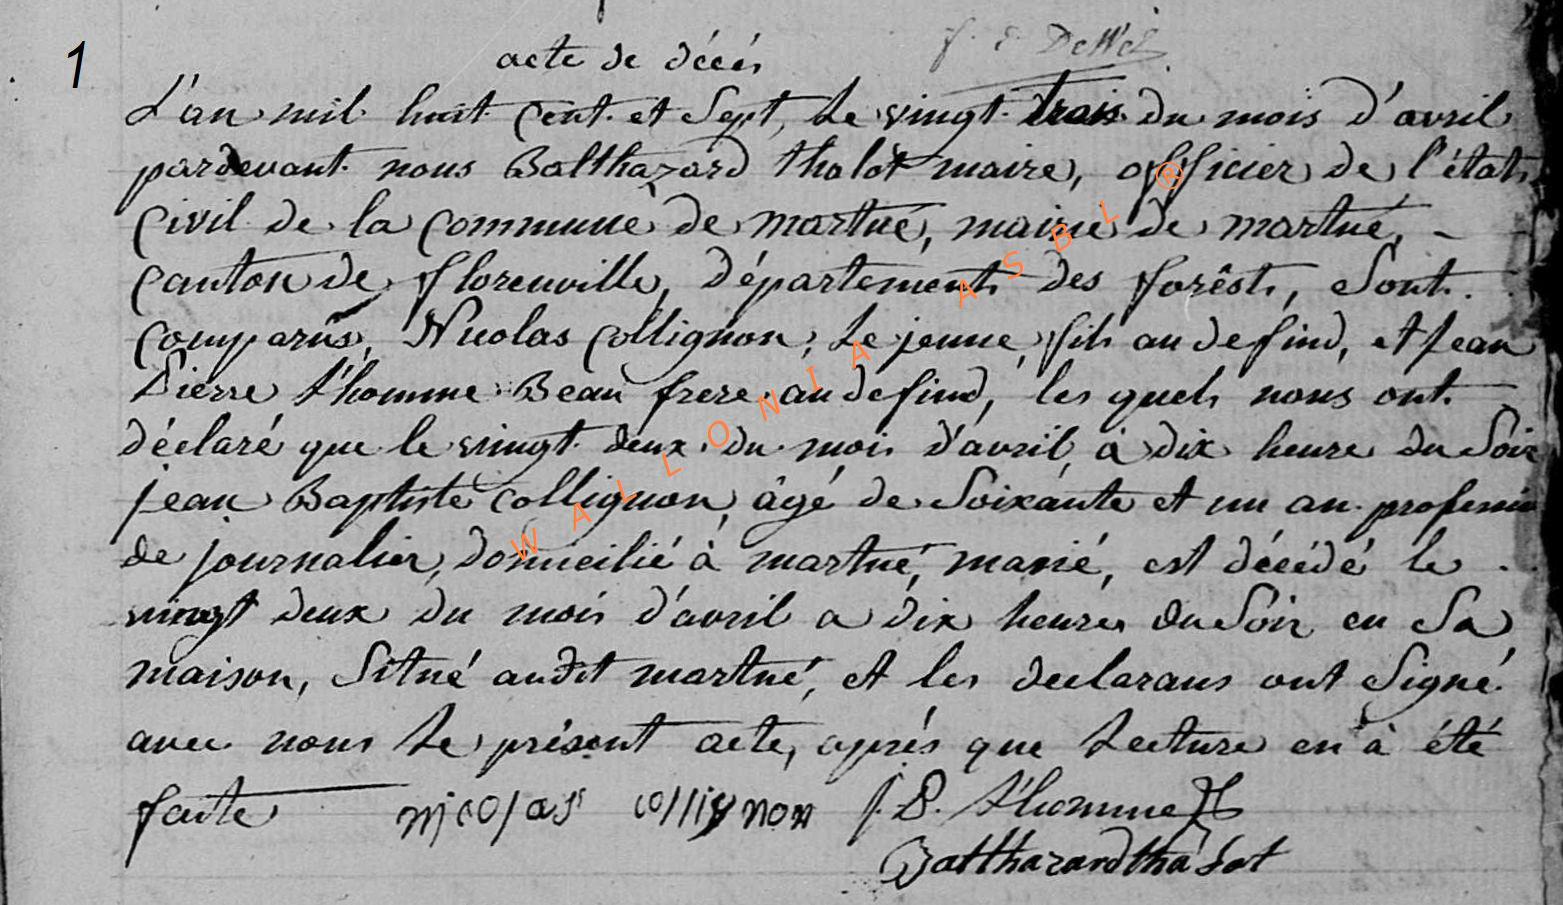 1
acte de décés
L'an mil huit Cent et Sept, Le vingt trois du mois d'avril
pardevant nous Balthazard thalot maire, officier de l'état
Civil de la Commune de martué, mairie de martué, -
Canton de florenville, département des forêsts, Sont
Comparus, Nicolas Collignon, Le jeune, fils au defind, et Jean
Pierre L'homme Beau frere au defind, les quels nous ont
déclaré que le vingt deux du mois d'avril, à dix heure du Soir
jean Baptiste Collignon, âgé de Soixante et un an profession
de journalier, domicilié à martué, marié, est décédé le
vingt deux du mois d'avril a dix heures du Soir en Sa
maison, Situé audit martué, et les declarans ont Signé
avec nous Le présent acte, aprés que Lecture en à été
faite nicolas collignon J. P. L'homme
Balthazard thalot
WALLONIA ASBL ®